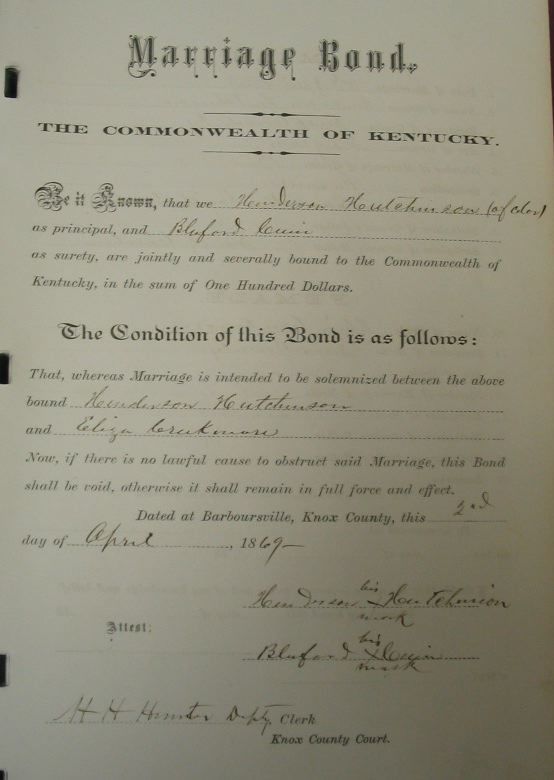 Marriage Bond.
THE COMMONWEALTH OF KENTUCKY.
Be it Known, that we Henderson Hutchinson (of color)
as principal, and Bluford
as surety, are jointly and severally bound to the Commonwealth of
Kentucky, in the sum of One Hundred Dollars.
The Condition of this Bond is as follows:
That, whereas Marriage is intended to be solemnized between the above
bound Henderson Hutchinson
and Eliza Creekmore
Now, if there is no lawful cause to obstruct said Marriage, this Bond
shall be void, otherwise it shall remain in full force and effect.
Dated at Barboursville, Knox County, this 2nd
day of April, 1869
his
Henderson x Hutchinson
mark
Attest:
his
Bluford x
mark
H H Hunter Dpty. Clerk
Knox County Court.